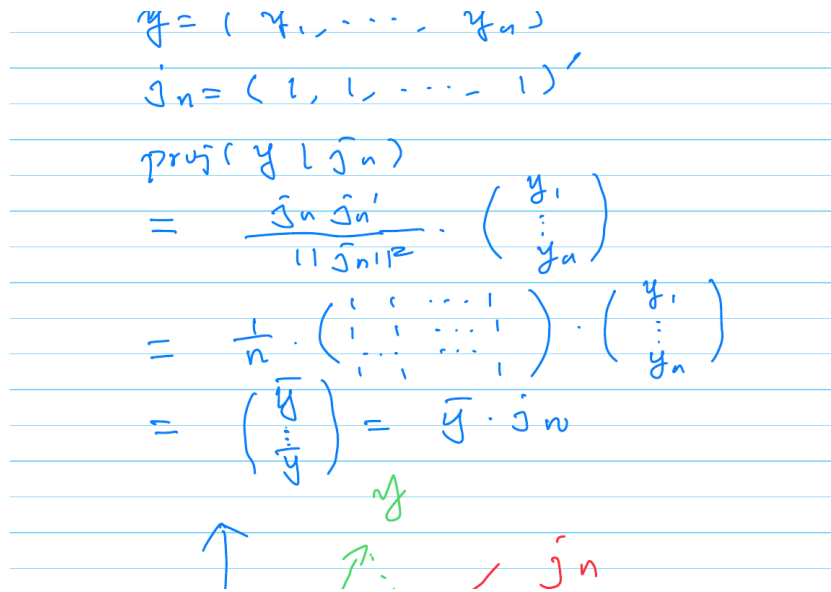 y = ( y₁, ..., yₙ )
jₙ = ( 1, 1, ..., 1 )′
proj( y | jₙ )
= jₙ jₙ′ / ||jₙ||² · ( y₁ ⋮ yₙ )
= 1/n · ( 1 1 ... 1 1 1 ... 1 ... ... 1 1 1 ) · ( y₁ ⋮ yₙ )
= ( ȳ ⋮ ȳ ) = ȳ · jₙ
y
jₙ